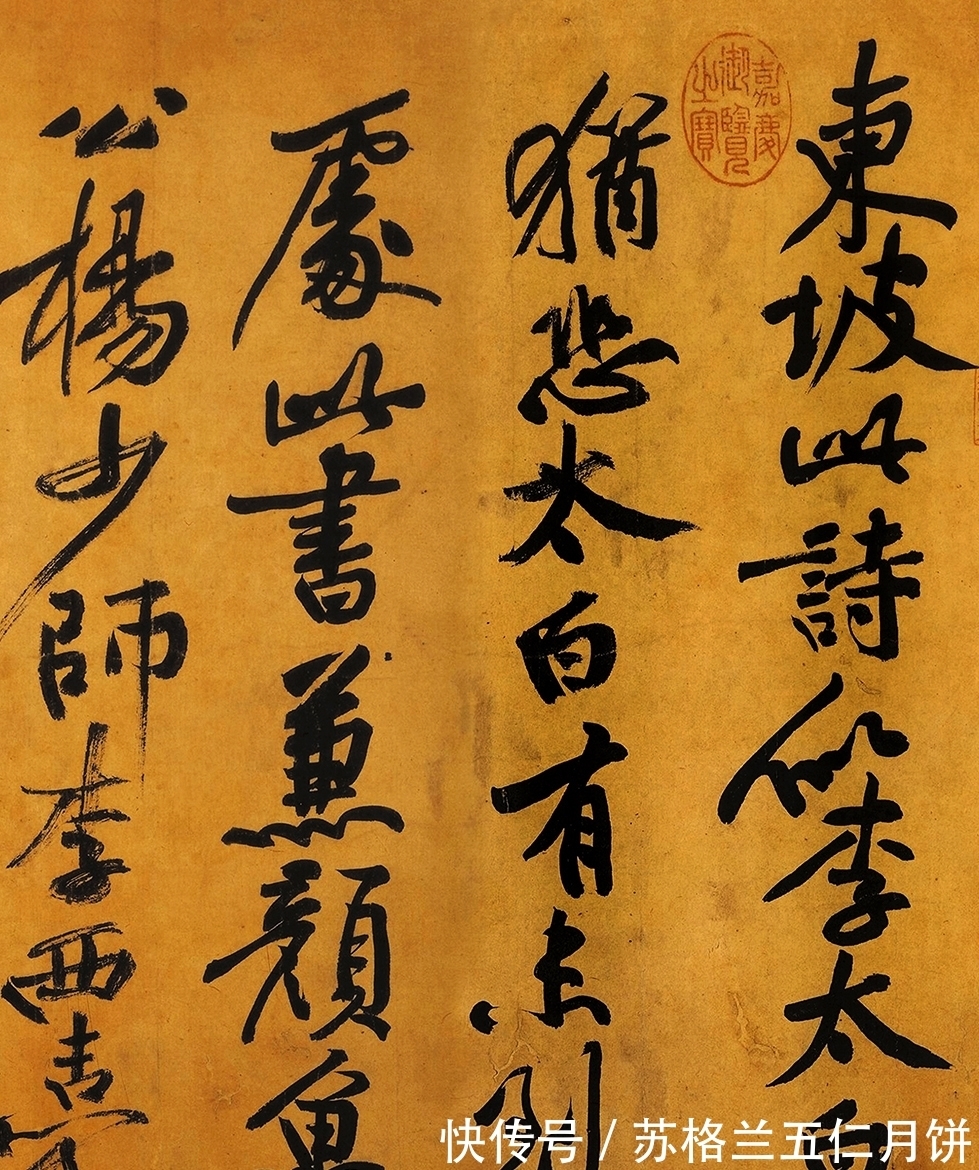 東坡此詩似李太白
猶恐太白有未到
處此書兼顏魯
公楊少師李西臺
嘉慶御覽之寶
快传号 / 苏格兰五仁月饼